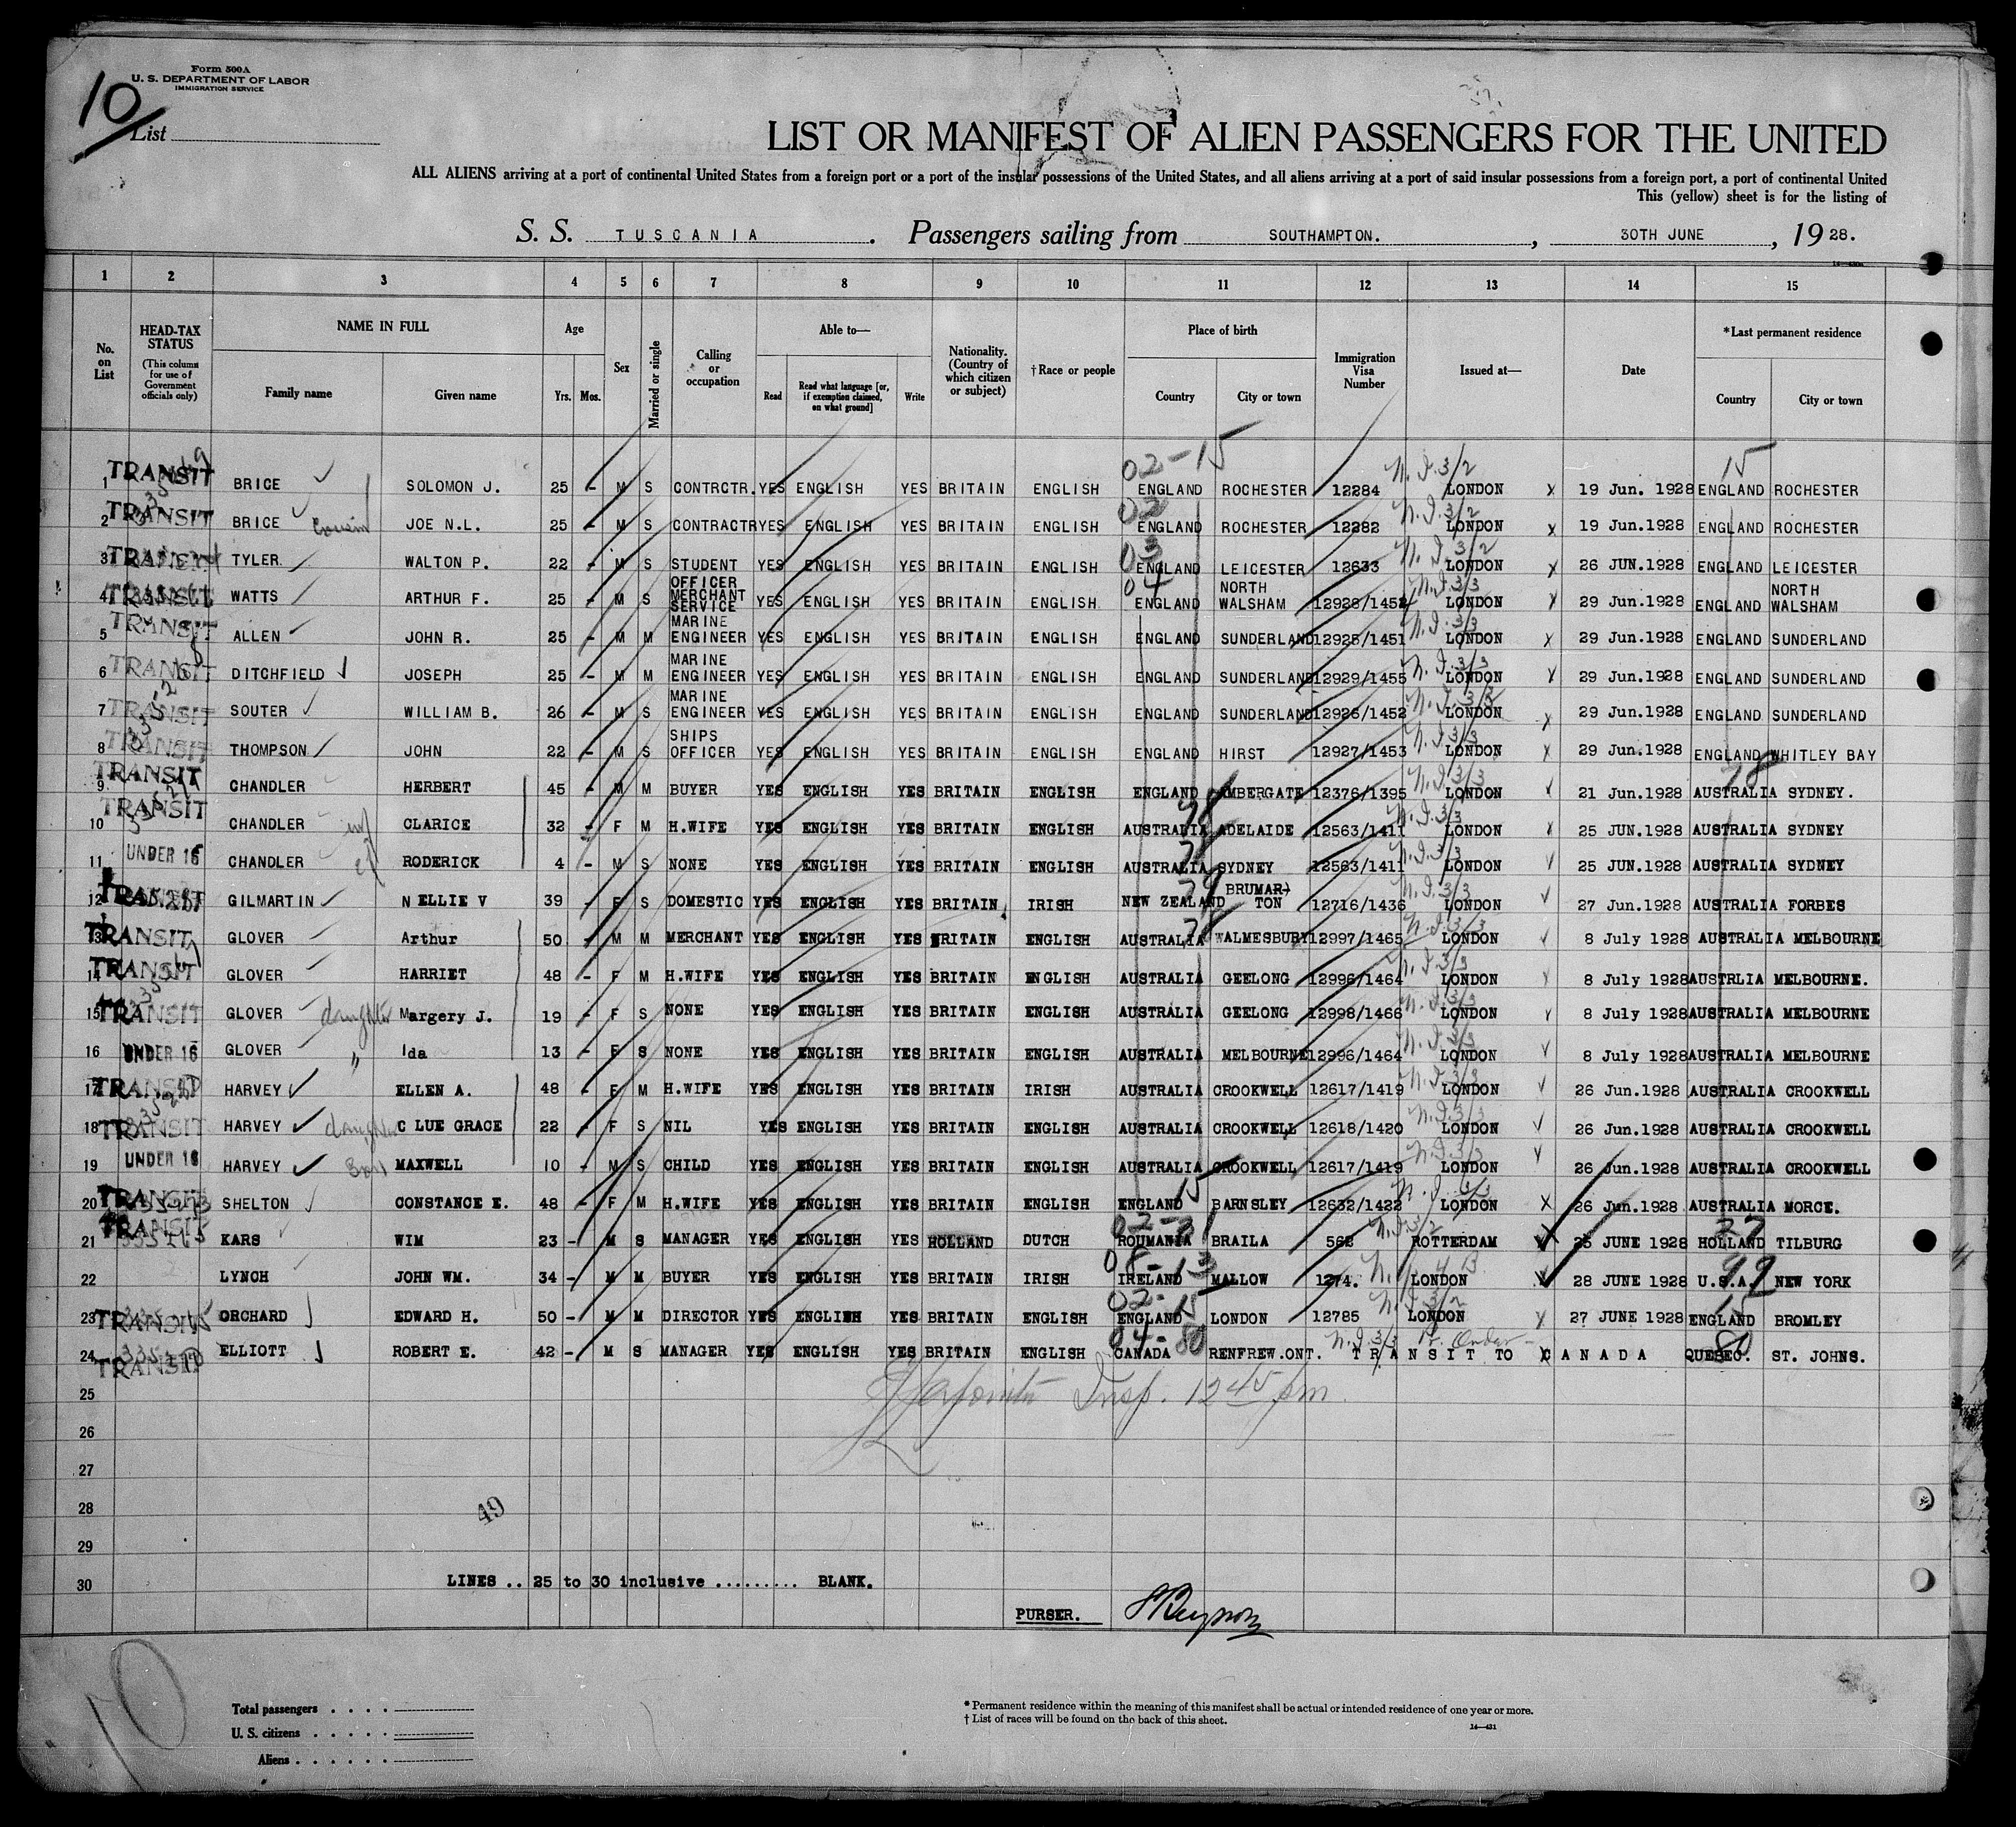 Form 500A
U. S. DEPARTMENT OF LABOR
IMMIGRATION SERVICE
10
List
LIST OR MANIFEST OF ALIEN PASSENGERS FOR THE UNITED
ALL ALIENS arriving at a port of continental United States from a foreign port or a port of the insular possessions of the United States, and all aliens arriving at a port of said insular possessions from a foreign port, a port of continental United
This (yellow) sheet is for the listing of
S. S. TUSCANIA. Passengers sailing from SOUTHAMPTON., 30TH JUNE, 1928.
1 2 3 4 5 6 7 8 9 10 11 12 13 14 15
No. on List
HEAD-TAX STATUS (This column for use of Government officials only)
NAME IN FULL Family name Given name
Age Yrs. Mos.
Sex
Married or single
Calling or occupation
Able to— Read Read what language [or, if exemption claimed, on what ground] Write
Nationality. (Country of which citizen or subject)
†Race or people
Place of birth Country City or town
Immigration Visa Number
Issued at—
Date
*Last permanent residence Country City or town
02-15 N.I.3/2 15
1 TRANSIT BRICE SOLOMON J. 25 - M S CONTRCTR. YES ENGLISH YES BRITAIN ENGLISH ENGLAND ROCHESTER 12284 LONDON X 19 Jun. 1928 ENGLAND ROCHESTER
02 N.I.3/2
2 TRANSIT BRICE cousin JOE N.L. 25 - M S CONTRACTR YES ENGLISH YES BRITAIN ENGLISH ENGLAND ROCHESTER 12282 LONDON X 19 Jun.1928 ENGLAND ROCHESTER
03 N.I.3/2
3 TRANSIT TYLER WALTON P. 22 - M S STUDENT YES ENGLISH YES BRITAIN ENGLISH ENGLAND LEICESTER 12633 LONDON X 26 JUN.1928 ENGLAND LEICESTER
04 N.I.3/3
4 TRANSIT WATTS ARTHUR F. 25 - M S OFFICER MERCHANT SERVICE YES ENGLISH YES BRITAIN ENGLISH ENGLAND NORTH WALSHAM LONDON 29 Jun.1928 ENGLAND NORTH WALSHAM
N.I.3/3
5 TRANSIT ALLEN JOHN R. 25 - M M MARINE ENGINEER YES ENGLISH YES BRITAIN ENGLISH ENGLAND SUNDERLAND 12925/1451 LONDON X 29 Jun.1928 ENGLAND SUNDERLAND
N.I.3/3
6 TRANSIT DITCHFIELD JOSEPH 25 - M M MARINE ENGINEER YES ENGLISH YES BRITAIN ENGLISH ENGLAND SUNDERLAND 12929/1455 LONDON 29 Jun.1928 ENGLAND SUNDERLAND
N.I.3/3
7 TRANSIT SOUTER WILLIAM B. 26 - M S MARINE ENGINEER YES ENGLISH YES BRITAIN ENGLISH ENGLAND SUNDERLAND 12926/1452 LONDON X 29 Jun.1928 ENGLAND SUNDERLAND
N.I.3/3
8 TRANSIT THOMPSON JOHN 22 - M S SHIPS OFFICER YES ENGLISH YES BRITAIN ENGLISH ENGLAND HIRST 12927/1453 LONDON X 29 Jun.1928 ENGLAND WHITLEY BAY
N.I.3/3 78
9 TRANSIT CHANDLER HERBERT 45 - M M BUYER YES ENGLISH YES BRITAIN ENGLISH ENGLAND AMBERGATE 12376/1395 LONDON 21 Jun.1928 AUSTRALIA SYDNEY.
78 N.I.3/3
10 TRANSIT CHANDLER wf CLARICE 32 - F M H.WIFE YES ENGLISH YES BRITAIN ENGLISH AUSTRALIA ADELAIDE 12563/1411 LONDON 25 JUN.1928 AUSTRALIA SYDNEY
N.I.3/3
11 UNDER 16 CHANDLER RODERICK 4 - M S NONE YES ENGLISH YES BRITAIN ENGLISH AUSTRALIA SYDNEY 12563/1411 LONDON 25 JUN.1928 AUSTRALIA SYDNEY
79 N.I.3/3
12 TRANSIT GILMARTIN NELLIE V 39 - F S DOMESTIC YES ENGLISH YES BRITAIN IRISH NEW ZEALAND BRUMAR-TON 12716/1436 LONDON 27 Jun.1928 AUSTRALIA FORBES
78 N.I.3/3
13 TRANSIT GLOVER Arthur 50 - M M MERCHANT YES ENGLISH YES BRITAIN ENGLISH AUSTRALIA WALMESBURY 12997/1465 LONDON 8 July 1928 AUSTRALIA MELBOURNE
N.I.3/3
14 TRANSIT GLOVER HARRIET 48 - F M H.WIFE YES ENGLISH YES BRITAIN ENGLISH AUSTRALIA GEELONG 12996/1464 LONDON 8 July 1928 AUSTRLIA MELBOURNE.
N.I.3/3
15 TRANSIT GLOVER daughter Margery J. 19 - F S NONE YES ENGLISH YES BRITAIN ENGLISH AUSTRALIA GEELONG 12998/1466 LONDON 8 July 1928 AUSTRALIA MELBOURNE
N.I.3/3
16 UNDER 16 GLOVER " Ida 13 - F S NONE YES ENGLISH YES BRITAIN ENGLISH AUSTRALIA MELBOURNE 12996/1464 LONDON 8 July 1928 AUSTRALIA MELBOURNE
N.I.3/3
17 TRANSIT HARVEY ELLEN A. 48 - F M H.WIFE YES ENGLISH YES BRITAIN IRISH AUSTRALIA CROOKWELL 12617/1419 LONDON 26 Jun.1928 AUSTRALIA CROOKWELL
N.I.3/3
18 TRANSIT HARVEY daughter C LUE GRACE 22 - F S NIL YES ENGLISH YES BRITAIN ENGLISH AUSTRALIA CROOKWELL 12618/1420 LONDON 26 Jun.1928 AUSTRALIA CROOKWELL
N.I.3/3
19 UNDER 16 HARVEY Son MAXWELL 10 - M S CHILD YES ENGLISH YES BRITAIN ENGLISH AUSTRALIA CROOKWELL 12617/1419 LONDON 26 Jun.1928 AUSTRALIA CROOKWELL
15 N.I.3/3
20 TRANSIT SHELTON CONSTANCE E. 48 - F M H.WIFE YES ENGLISH YES BRITAIN ENGLISH ENGLAND BARNSLEY 12632/1422 LONDON X 26 Jun.1928 AUSTRALIA MORCE.
02-31 N.I.3/2 27
21 TRANSIT KARS WIM 23 - M S MANAGER YES ENGLISH YES HOLLAND DUTCH ROUMANIA BRAILA 562 ROTTERDAM X 25 JUNE 1928 HOLLAND TILBURG
08-13 99
22 LYNCH JOHN WM. 34 - M M BUYER YES ENGLISH YES BRITAIN IRISH IRELAND MALLOW 1274. LONDON 28 JUNE 1928 U.S.A. NEW YORK
02-15 N.I.3/2 15
23 TRANSIT ORCHARD EDWARD H. 50 - M M DIRECTOR YES ENGLISH YES BRITAIN ENGLISH ENGLAND LONDON 12785 LONDON 27 JUNE 1928 ENGLAND BROMLEY
04-80 N.I.3/3 80
24 TRANSIT ELLIOTT ROBERT E. 42 - M S MANAGER YES ENGLISH YES BRITAIN ENGLISH CANADA RENFREW.ONT. TRANSIT TO CANADA QUEBEC. ST. JOHNS.
25 Insp. 12 45 pm.
26
27
28
49
29
30 LINES .. 25 to 30 inclusive ......... BLANK.
PURSER.
10
Total passengers . . . .
U. S. citizens . . . .
Aliens . . . . . .
* Permanent residence within the meaning of this manifest shall be actual or intended residence of one year or more.
† List of races will be found on the back of this sheet.
14—431